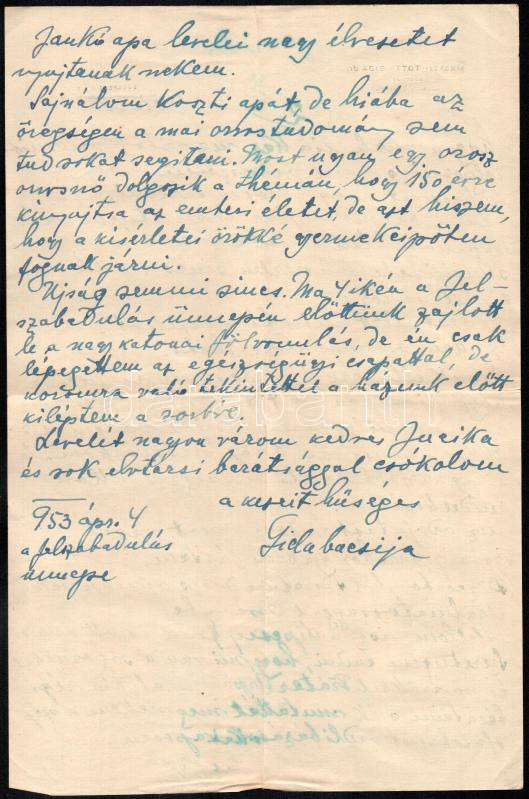 Jankó apa levelei nagy élvezetet
nyujtanak nekem.
Sajnálom Koszti apát, de hiába az
öregségen a mai orvostudomány sem
tud sokat segiteni. Most ugyan egy orosz
orvosnő dolgozik a thémán, hogy 150 évre
kinyujtsa az emberi életet, de azt hiszem,
hogy a kisérletei örökké gyermekcipőben
fognak járni.
Ujság semmi sincs. Ma 4 ikén a Fel-
szabadulás ünnepén előttünk zajlott
le a nagy katonai fölvonulás, de én csak
lépegettem az egészségügyi csapattal, de
koromra való tekintettel a házunk előtt
kiléptem a sorból.
Levelét nagyon várom kedves Jucika
és sok elvtársi barátsággal csókolom
a keresit hűséges
953 ápr. 4
a felszabadulás
ünnepe
bacsija
darabanth